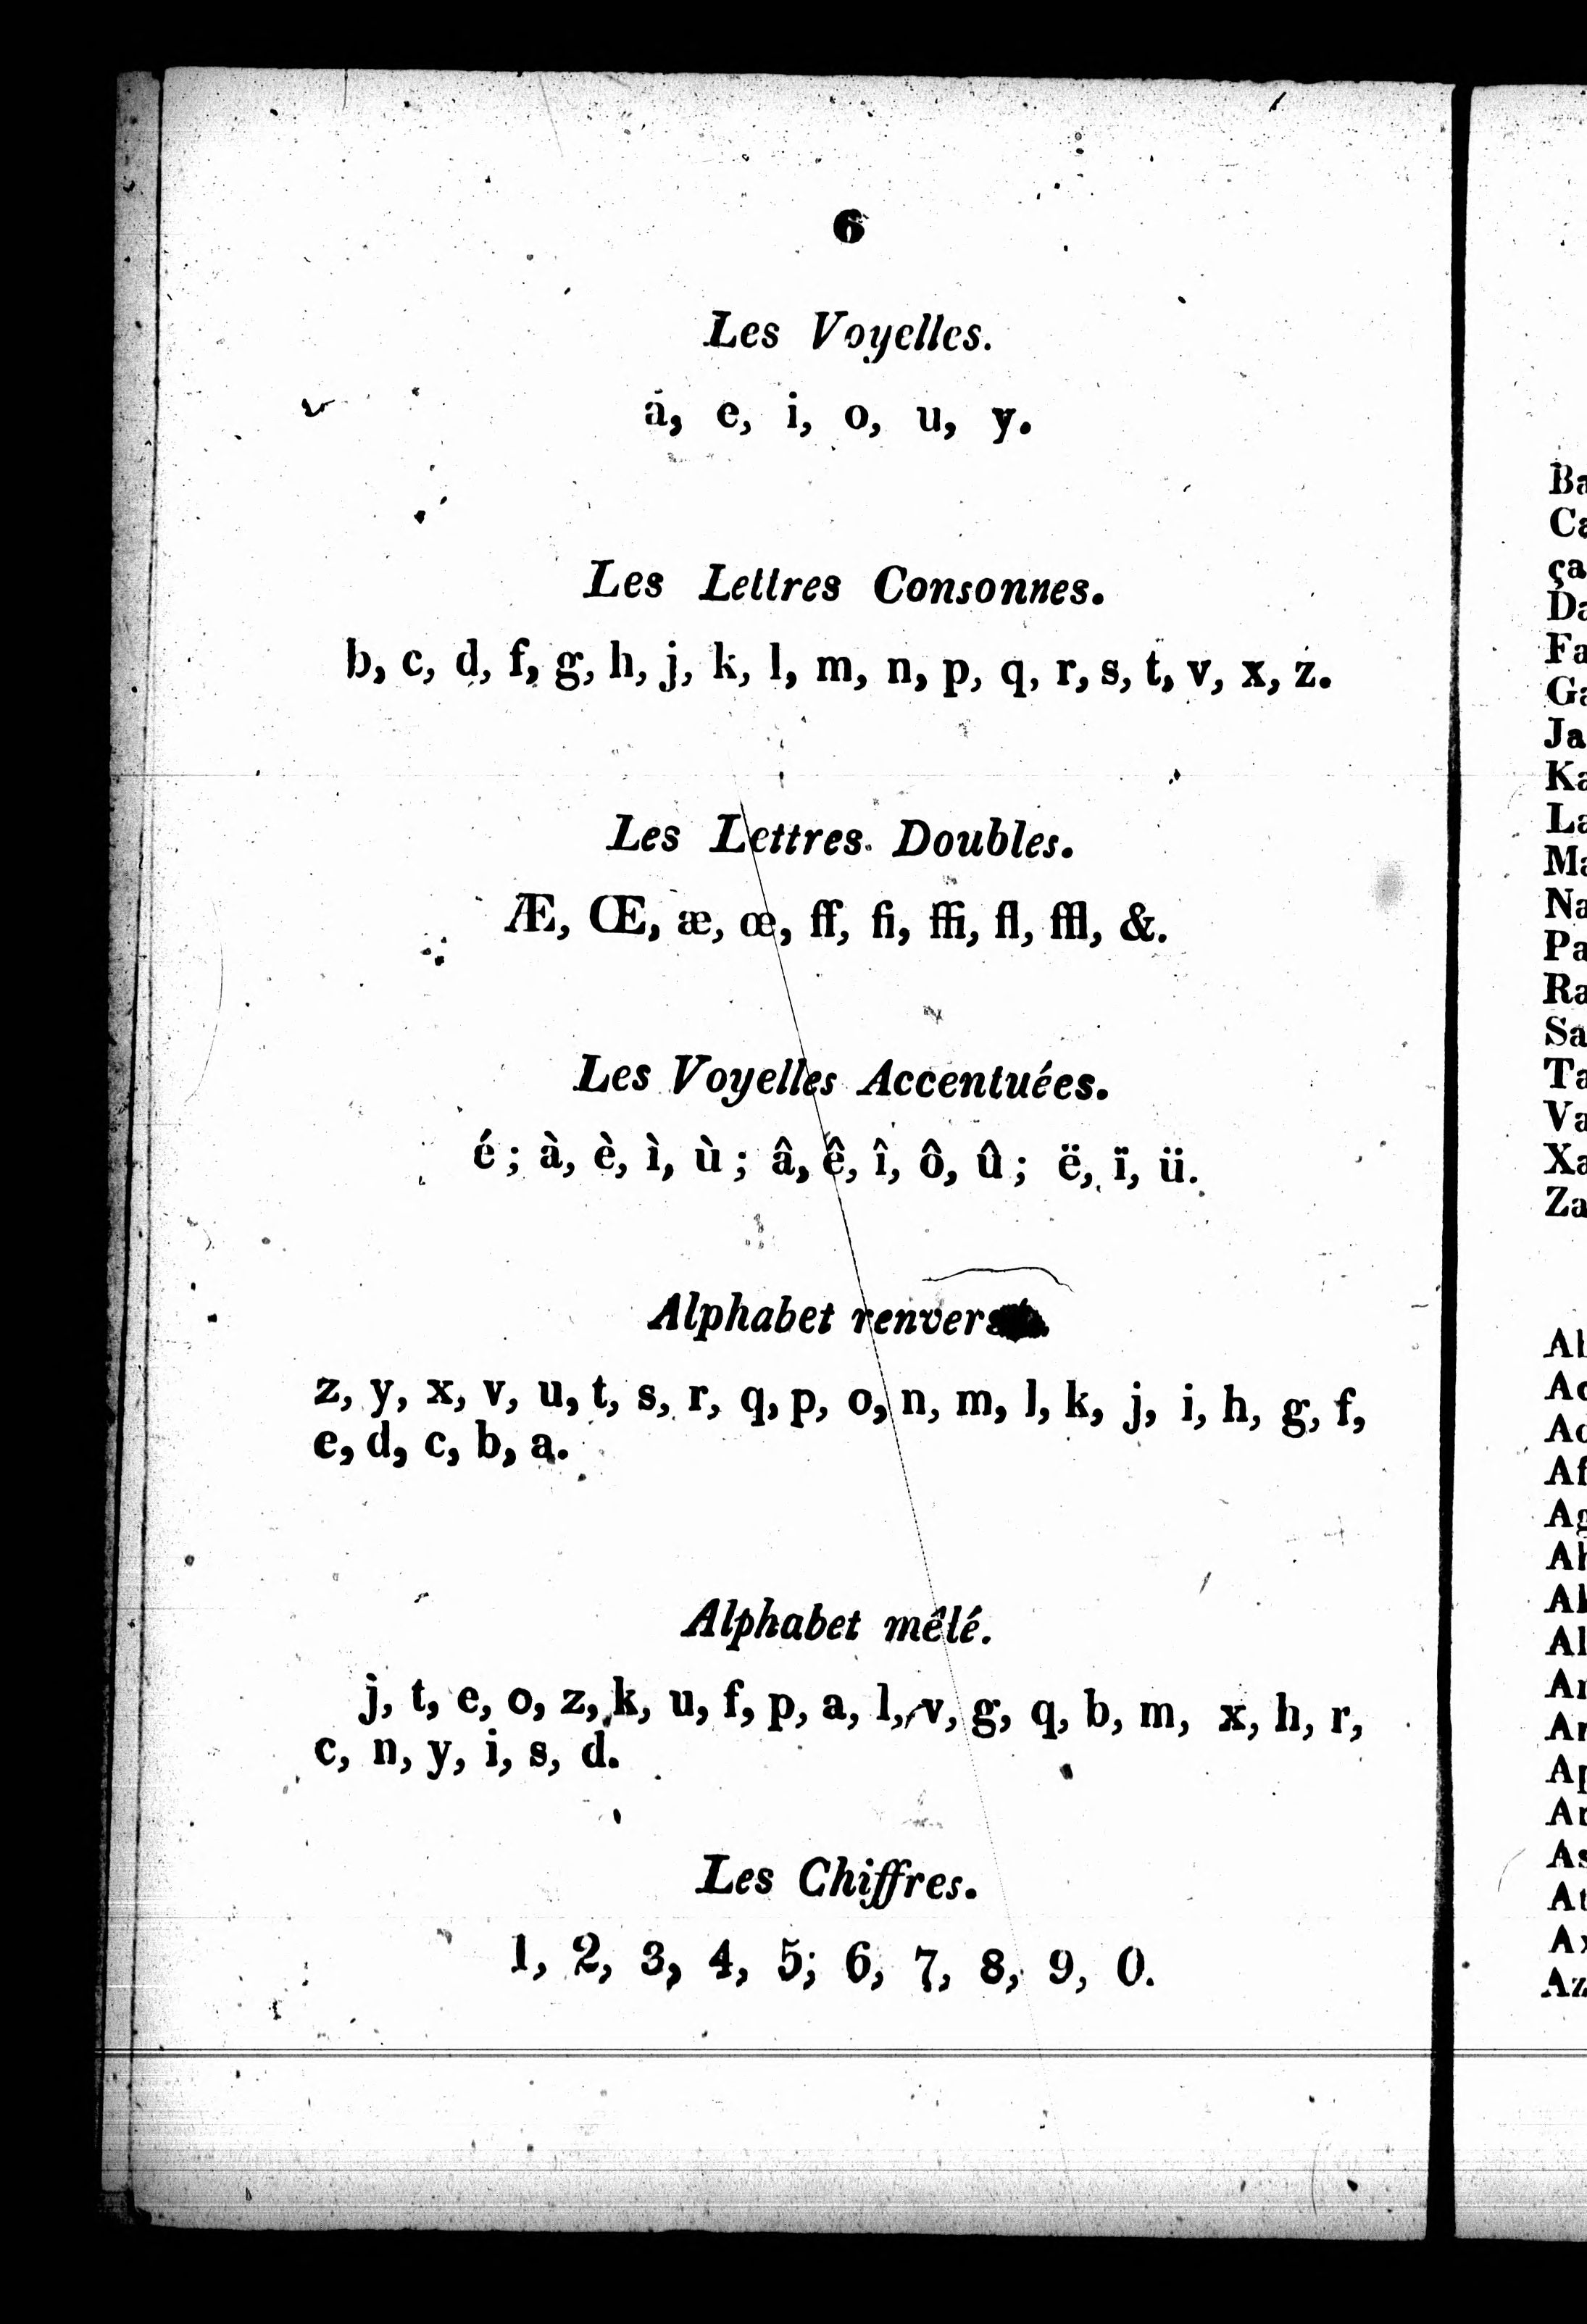 6
Les Voyelles.
a, e, i, o, u, y.
Les Lettres Consonnes.
b, c, d, f, g, h, j, k, l, m, n, p, q, r, s, t, v, x, z.
Les Lettres Doubles.
Æ, Œ, æ, œ, ff, fi, ffi, fl, ffl, &.
Les Voyelles Accentuées.
é ; à, è, ì, ù ; â, ê, î, ô, û ; ë, ï, ü.
Alphabet
z, y, x, v, u, t, s, r, q, p, o, n, m, l, k, j, i, h, g, f,
e, d, c, b, a.
Alphabet mêlé.
j, t, e, o, z, k, u, f, p, a, l, v, g, q, b, m, x, h, r,
c, n, y, i, s, d.
Les Chiffres.
1, 2, 3, 4, 5; 6, 7, 8, 9, 0.
Ba
Ca
ça
Da
Fa
Ga
Ja
Ka
La
Ma
Na
Pa
Ra
Sa
Ta
Va
Xa
Za